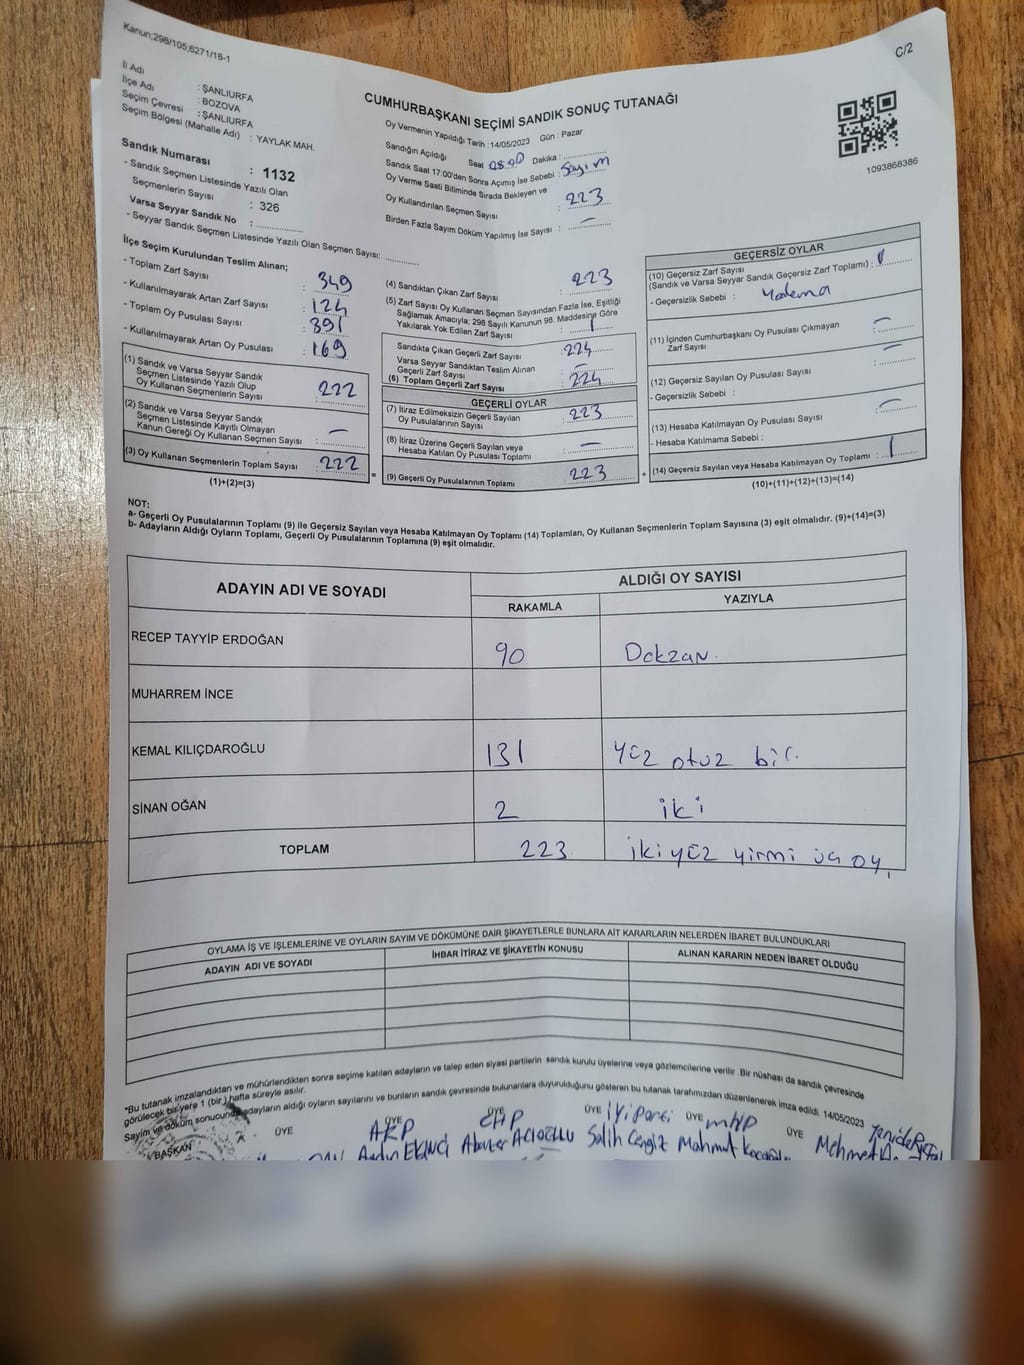 Kanun:298/105;6271/18-1
C/2
İl Adı : ŞANLIURFA
İlçe Adı : BOZOVA
Seçim Çevresi : ŞANLIURFA
Seçim Bölgesi (Mahalle Adı) : YAYLAK MAH.
Sandık Numarası : 1132
- Sandık Seçmen Listesinde Yazılı Olan
Seçmenlerin Sayısı : 326
Varsa Seyyar Sandık No :
- Seyyar Sandık Seçmen Listesinde Yazılı Olan Seçmen Sayısı:
CUMHURBAŞKANI SEÇİMİ SANDIK SONUÇ TUTANAĞI
Oy Vermenin Yapıldığı Tarih : 14/05/2023 Gün : Pazar
Sandığın Açıldığı Saat 08:00 Dakika :
Sandık Saat 17:00'den Sonra Açımış İse Sebebi : Sayım
Oy Verme Saati Bitiminde Sırada Bekleyen ve
Oy Kullandırılan Seçmen Sayısı : 223
Birden Fazla Sayım Döküm Yapılmış İse Sayısı : –
1093868386
İlçe Seçim Kurulundan Teslim Alınan;
- Toplam Zarf Sayısı : 349
- Kullanılmayarak Artan Zarf Sayısı : 124
- Toplam Oy Pusulası Sayısı : 391
- Kullanılmayarak Artan Oy Pusulası : 169
(1) Sandık ve Varsa Seyyar Sandık
Seçmen Listesinde Yazılı Olup
Oy Kullanan Seçmenlerin Sayısı : 222
(2) Sandık ve Varsa Seyyar Sandık
Seçmen Listesinde Kayıtlı Olmayan
Kanun Gereği Oy Kullanan Seçmen Sayısı : –
(3) Oy Kullanan Seçmenlerin Toplam Sayısı : 222
(1)+(2)=(3)
(4) Sandıktan Çıkan Zarf Sayısı : 223
(5) Zarf Sayısı Oy Kullanan Seçmen Sayısından Fazla İse, Eşitliği
Sağlamak Amacıyla; 298 Sayılı Kanunun 98. Maddesine Göre
Yakılarak Yok Edilen Zarf Sayısı : 1
Sandıkta Çıkan Geçerli Zarf Sayısı : 224
Varsa Seyyar Sandıktan Teslim Alınan
Geçerli Zarf Sayısı : –
(6) Toplam Geçerli Zarf Sayısı : 224
GEÇERLİ OYLAR
(7) İtiraz Edilmeksizin Geçerli Sayılan
Oy Pusulalarının Sayısı : 223
(8) İtiraz Üzerine Geçerli Sayılan veya
Hesaba Katılan Oy Pusulası Toplamı : –
= (9) Geçerli Oy Pusulalarının Toplamı : 223
GEÇERSİZ OYLAR
(10) Geçersiz Zarf Sayısı
(Sandık ve Varsa Seyyar Sandık Geçersiz Zarf Toplamı) : 1
- Geçersizlik Sebebi :
(11) İçinden Cumhurbaşkanı Oy Pusulası Çıkmayan
Zarf Sayısı : –
(12) Geçersiz Sayılan Oy Pusulası Sayısı : –
- Geçersizlik Sebebi :
(13) Hesaba Katılmayan Oy Pusulası Sayısı : –
- Hesaba Katılmama Sebebi :
+ (14) Geçersiz Sayılan veya Hesaba Katılmayan Oy Toplamı : 1
(10)+(11)+(12)+(13)=(14)
NOT:
a- Geçerli Oy Pusulalarının Toplamı (9) ile Geçersiz Sayılan veya Hesaba Katılmayan Oy Toplamı (14) Toplamları, Oy Kullanan Seçmenlerin Toplam Sayısına (3) eşit olmalıdır. (9)+(14)=(3)
b- Adayların Aldığı Oyların Toplamı, Geçerli Oy Pusulalarının Toplamına (9) eşit olmalıdır.
ADAYIN ADI VE SOYADI
ALDIĞI OY SAYISI
RAKAMLA YAZIYLA
RECEP TAYYİP ERDOĞAN 90 Dokzan.
MUHARREM İNCE
KEMAL KILIÇDAROĞLU 131 Yüz otuz bir.
SİNAN OĞAN 2 iki
TOPLAM 223 ikiyüz yirmi üç oy.
OYLAMA İŞ VE İŞLEMLERİNE VE OYLARIN SAYIM VE DÖKÜMÜNE DAİR ŞİKAYETLERLE BUNLARA AİT KARARLARIN NELERDEN İBARET BULUNDUKLARI
ADAYIN ADI VE SOYADI İHBAR İTİRAZ VE ŞİKAYETİN KONUSU ALINAN KARARIN NEDEN İBARET OLDUĞU
"Bu tutanak imzalandıktan ve mühürlendikten sonra seçime katılan adayların ve talep eden siyasi partilerin sandık kurulu üyelerine veya gözlemcilerine verilir. Bir nüshası da sandık çevresinde
görülecek bir yere 1 (bir) hafta süreyle asılır.
Sayım ve döküm sonucunda adayların aldığı oyların sayılarını ve bunların sandık çevresinde bulunanlara duyurulduğunu gösteren bu tutanak tarafımızdan düzenlenerek imza edildi. 14/05/2023
BAŞKAN ÜYE ÜYE ÜYE ÜYE ÜYE ÜYE
AKP CHP iyi parti MHP
Aydın EKİNCİ Salih Cengiz Mahmut Mehmet